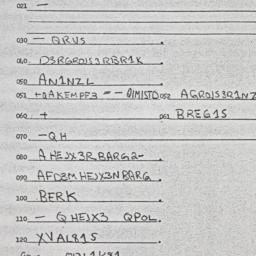 021 —
030 — QRUS
040 D3RGROJS3RBR1K
050 AN1NZL
051 +QAKEMPF3 — – QIMISTD 052 AGROJS3R1NZ
060 + 061 BREG1S
070 -QH
080 AHEJX3RBARG2-
090 AFD3MHEJX3NBARG
100 BERK
110 — QHEJX3 QPOL.
120 XVAL81S